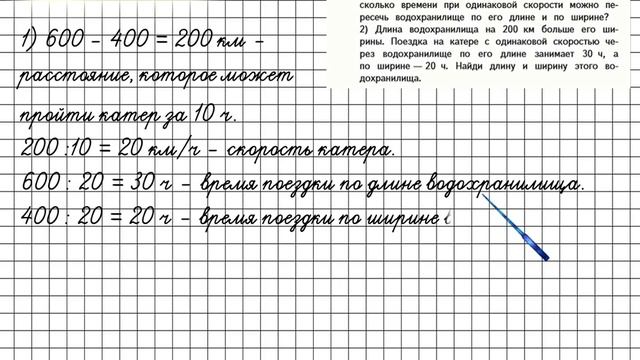 сколько времени при одинаковой скорости можно пе-
ресечь водохранилище по его длине и по ширине?
2) Длина водохранилища на 200 км больше его ши-
рины. Поездка на катере с одинаковой скоростью че-
рез водохранилище по его длине занимает 30 ч, а
по ширине — 20 ч. Найди длину и ширину этого во-
дохранилища.
1) 600 - 400 = 200 км -
расстояние, которое может
пройти катер за 10 ч.
200 :10 = 20 км/ч - скорость катера.
600 : 20 = 30 ч - время поездки по длине водохранилища.
400 : 20 = 20 ч - время поездки по ширине